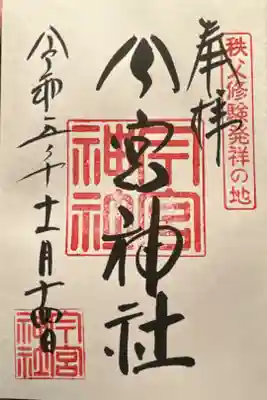 秩父修験発祥の地
奉拝
今宮神社
今宮神社
令和五年十一月十四日
今宮神社